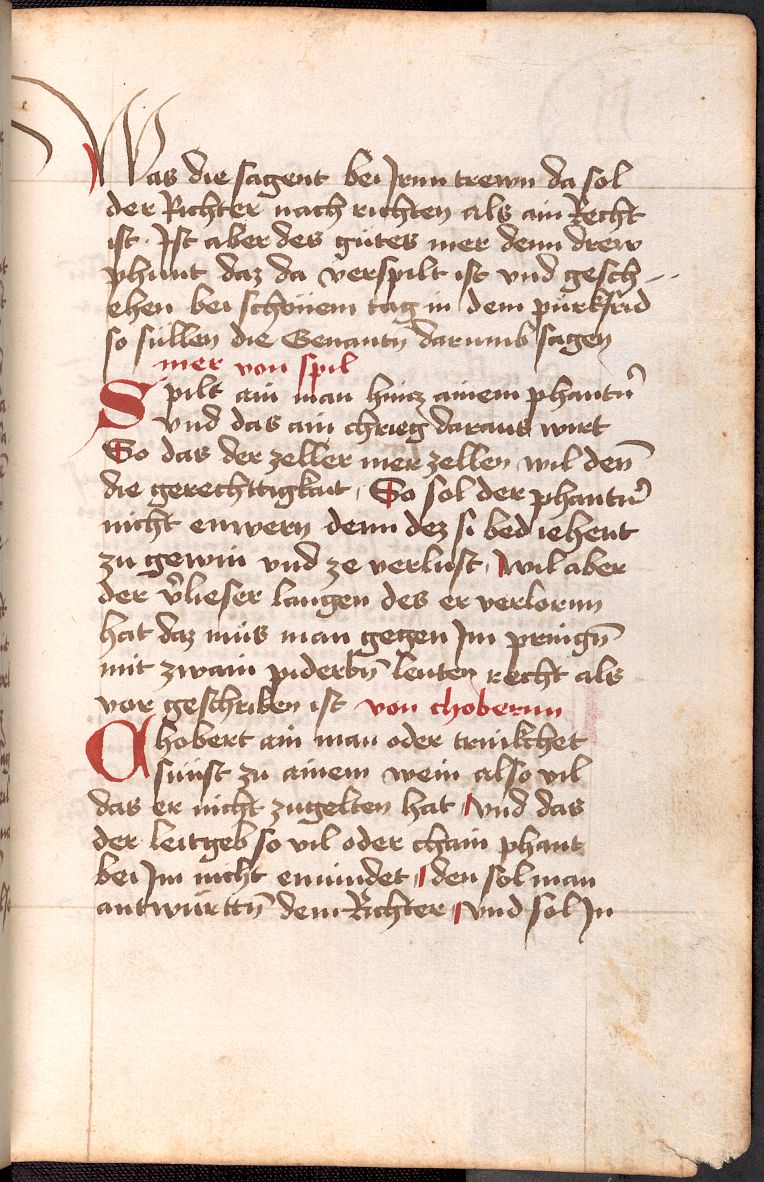 Was die sagent bei Irnn trewn da sol
der Richter nach richten als ain Recht
ist · Ist aber des gutes mer denn drew
phunt daz da verspilt ist vnd gesch
ehen bei schönem tag in dem purkfrid
so süllen die Genantn̄ darumb sagen
mer von spil
Spilt ain man hincz ainem phantn̄
vnd das ain chrieg daraus wirt
So das der zeller mer zellen wil den̄
die gerechttigkait · So sol der phantn̄
nicht enwern denn dez si bed iehent
zu gewin vnd ze verlust · wil aber
der v̄lieser laugen des er verlornn
hat daz müs man gegen Im pringn̄
mit zwain piderbn̄ leuten recht als
vor geschriben ist von chobernn
Chobert ain man oder trinkchet
sünst zu ainem wein also vil
das er nicht zugelten hat vnd das
der leitgeb so vil oder chain phant
bei Im nicht enuindet den sol man
antwürttn̄ dem Richter vnd sol In